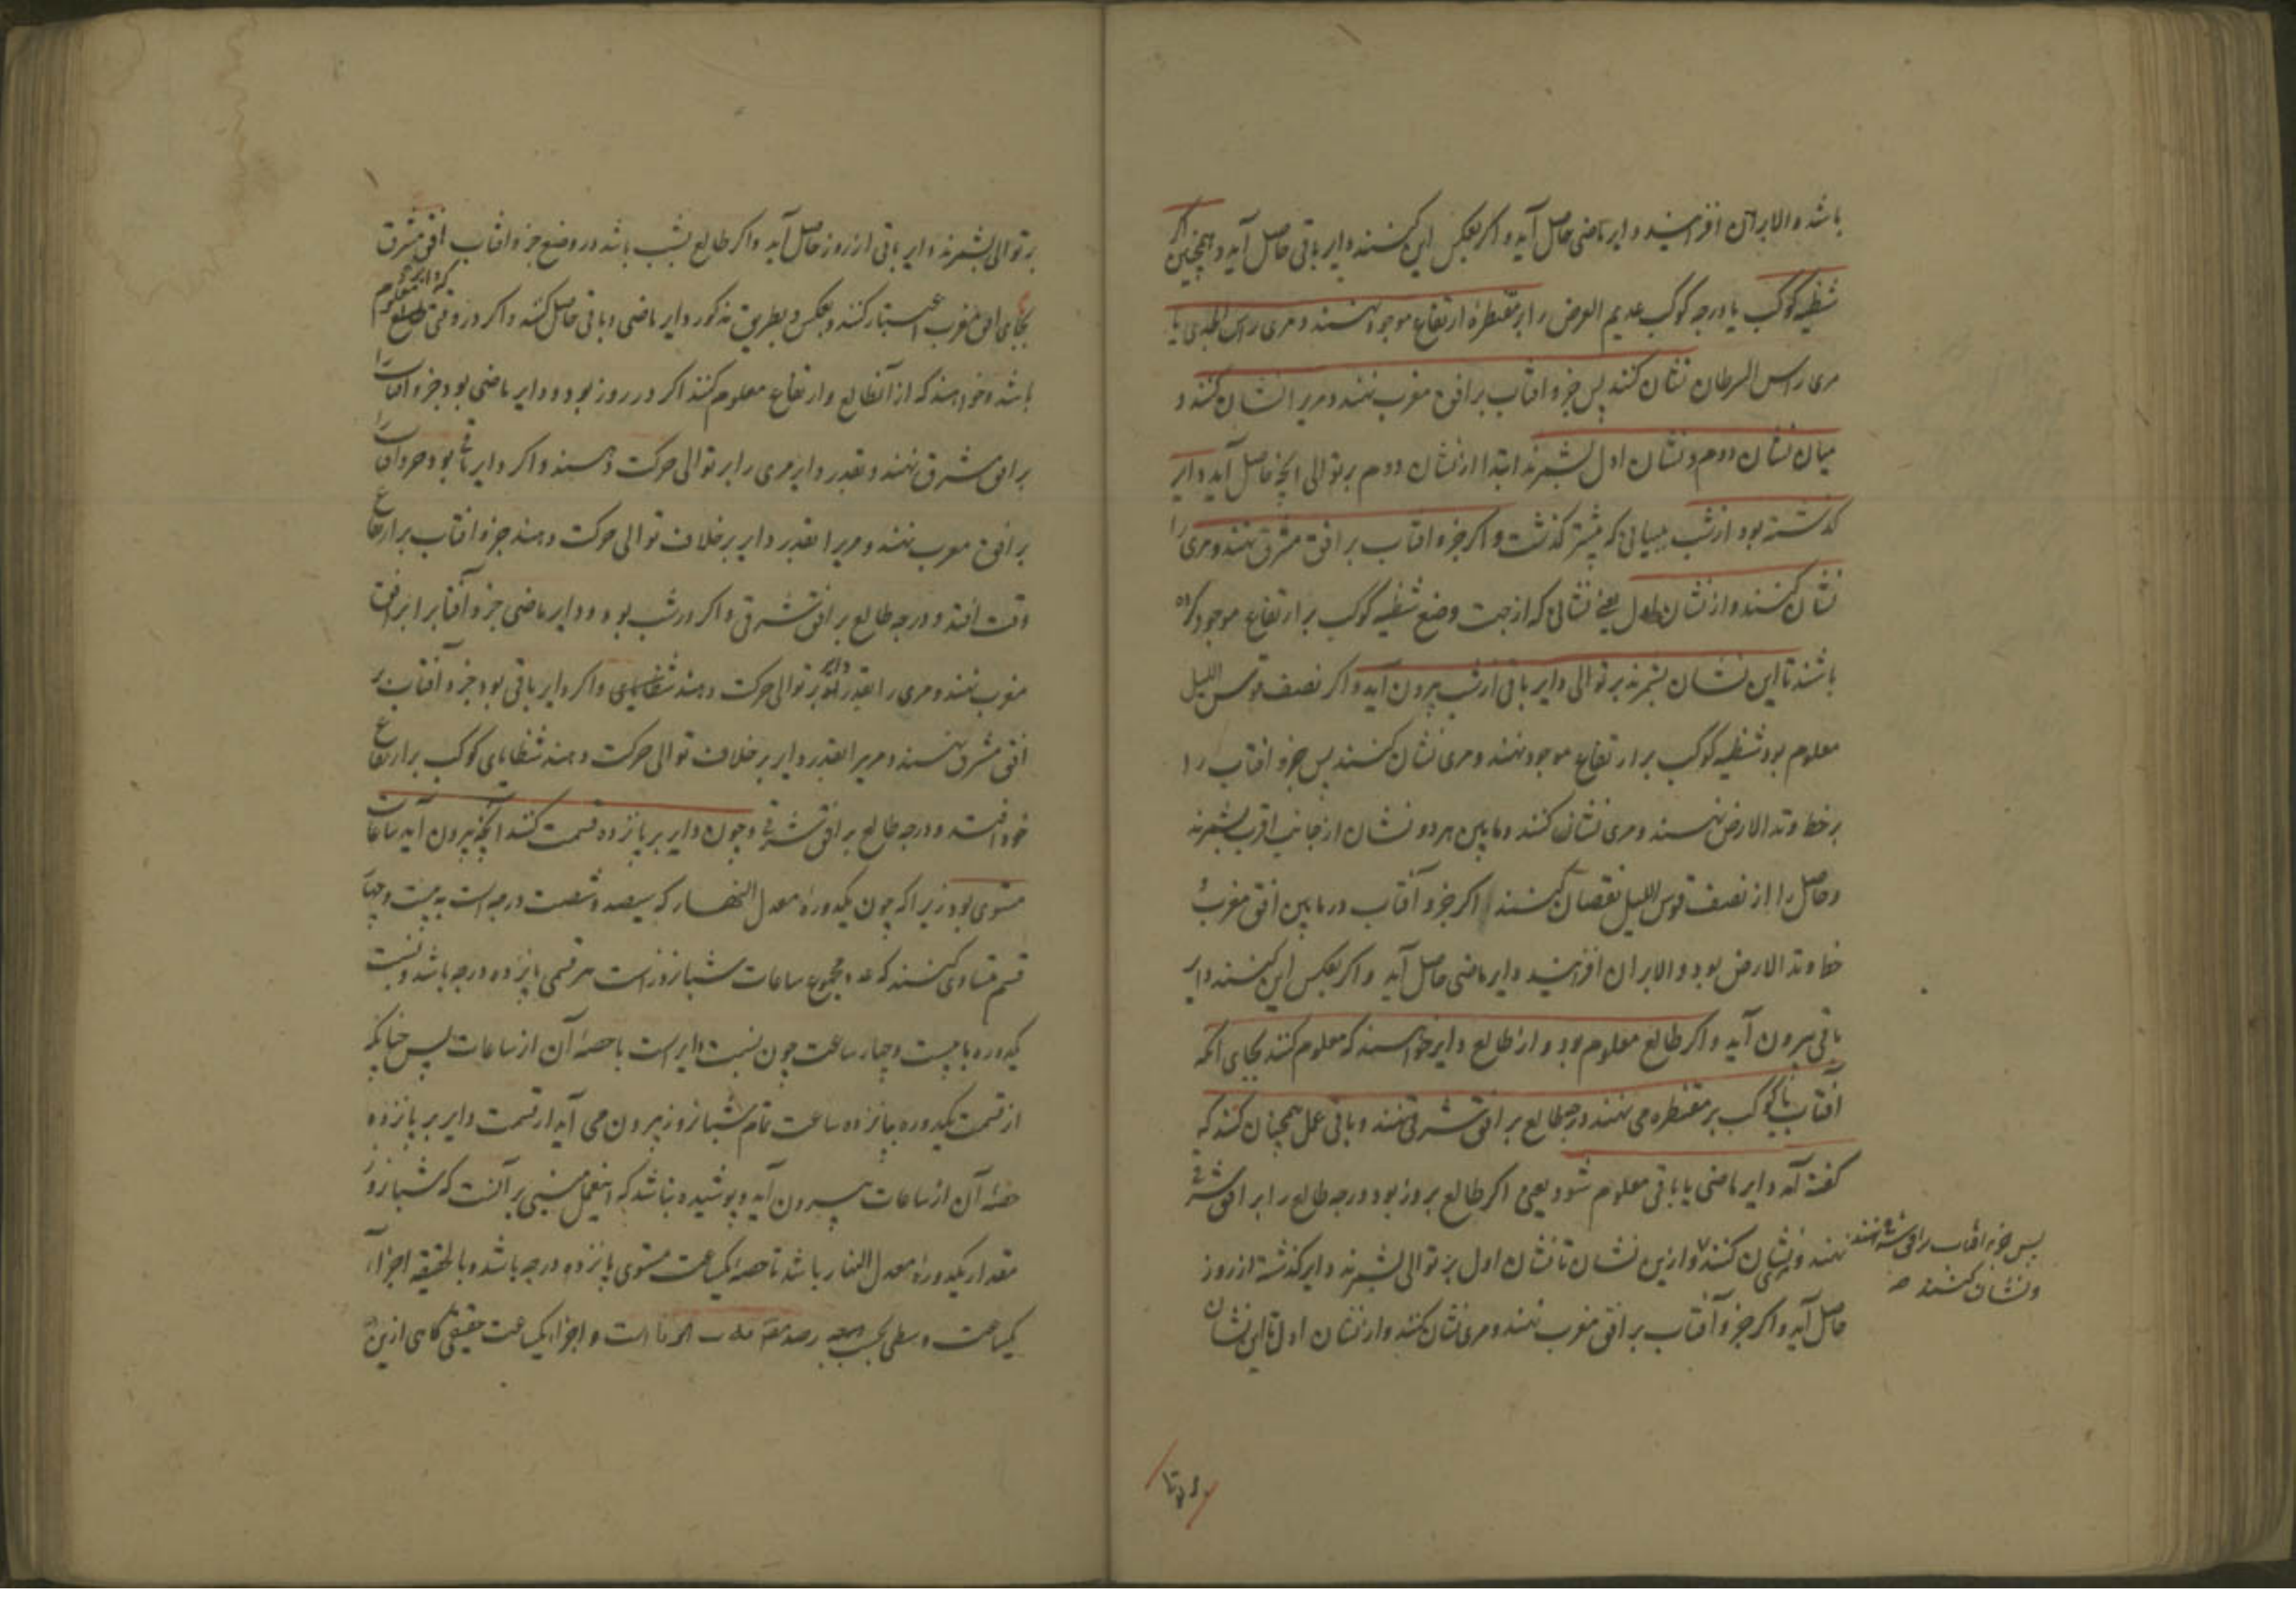 باشد والا بران افزایند دایر ماضی حاصل آید و اگر بعکس این کنند دایر باقی حاصل آید و همچنین اگر
شظیه کوکب یا درجه کوکب عدیم العرض را بر مقنطرهٔ ارتفاع موجود نهند و مری راس الجدی یا
مری راس السرطان نشان کنند پس جزو افتاب بر افق مغرب نهند و مریرا نشان کنند و
میان نشان دوم و نشان اول بشمرند ابتدا از نشان دوم بر توالی انچه حاصل آید دایر
گذشته بود از شب ببیانی که پیشتر گذشت و اگر جزو افتاب بر افق مشرق نهند و مری را
نشان کنند و از نشان اول یعنی نشانی که از جهت وضع شظیه کوکب بر ارتفاع موجود کرده
باشند تا این نشان بشمرند بر توالی دایر باقی از شب بیرون آید و اگر نصف قوس اللیل
معلوم بود شظیه کوکب بر ارتفاع موجود نهند و مری نشان کنند پس جزو افتاب را
بر خط وتد الارض نهند و مری نشان کنند و مابین هر دو نشان از جانب اقرب بشمرند
و حاصل را از نصف قوس اللیل نقصان کنند اگر جزو آفتاب در مابین افق مغرب و
خط وتد الارض بود و الا بران افزایند دایر ماضی حاصل آید و اگر بعکس این کنند دایر
باقی بیرون آید و اگر طالع معلوم بود و از طالع دایر خواهند که معلوم کنند بجای آنکه
آفتاب یا کوکب بر مقنطره می نهند درجه طالع بر افق شرقی نهند و باقی عمل همچنان کنند که
گفته آمد دایر ماضی یا باقی معلوم شود یعنی اگر طالع بروز بود درجه طالع را بر افق شرقی
نهند و نشان کنند و ازین نشان تا نشان اول بر توالی بشمرند دایر گذشته از روز
پس جزو افتاب بر افق شرقی نهند
و نشان کنند صح
حاصل آید و اگر جزو آفتاب بر افق مغرب نهند و مری نشان کنند و از نشان اول تا این نشان
بر توالی بشمرند دایر باقی از روز حاصل آید و اگر طالع بشب باشد در وضع جزو افتاب افق مشرق را
بجای افق مغرب اعتبار کنند و بعکس و بطریق مذکور دایر ماضی و باقی حاصل کنند و اگر در وقتی که دایر معلوم
باشد و خواهند که از آن طالع و ارتفاع معلوم کنند اگر در روز بود و دایر ماضی بود جزو آفتاب را
بر افق مشرق نهند و بقدر دایر مری را بر توالی حرکت دهند و اگر دایر باقی بود جزو آفتاب را
بر افق مغرب نهند و مریرا بقدر دایر بر خلاف توالی حرکت دهند جزو افتاب بر ارتفاع
وقت افتد و درجه طالع بر افق شرقی و اگر در شب بود و دایر ماضی جزو آفتابرا بر افق
مغرب نهند و مری را بقدر دایر بر توالی حرکت دهند و اگر دایر باقی بود جزو آفتاب بر
افق مشرق نهند و مریرا بقدر دایر بر خلاف توالی حرکت دهند شظایای کوکب بر ارتفاع
خود افتد و درجه طالع بر افق شرقی و چون دایر بر پانزده قسمت کنند آنچه بیرون آید ساعات
مستوی بود زیرا که چون یکدورهٔ معدل النهار که سیصد و شصت درجه است به بیست و چهار
قسم متساوی کنند که عدد مجموع ساعات شبانروز است هر قسمی پانزده درجه باشد و نسبت
یکدوره با بیست و چهار ساعت چون نسبت دایر است با حصهٔ آن از ساعات پس چنانکه
از قسمت یکدوره بپانزده ساعت تمام شبانروز بیرون می آید از قسمت دایر بر پانزده
حصهٔ آن از ساعات بیرون آید و پوشیده نباشد که اینعمل مبنی بر آنست که شبانروز
مقدار یکدورهٔ معدل النهار باشد تا حصهٔ یکساعت مستوی پانزده درجه باشد و بالحقیقه اجزاء
یکساعت وسطی بحسب رصد است و اجزاء یکساعت حقیقی گاهی ازین
بر توا